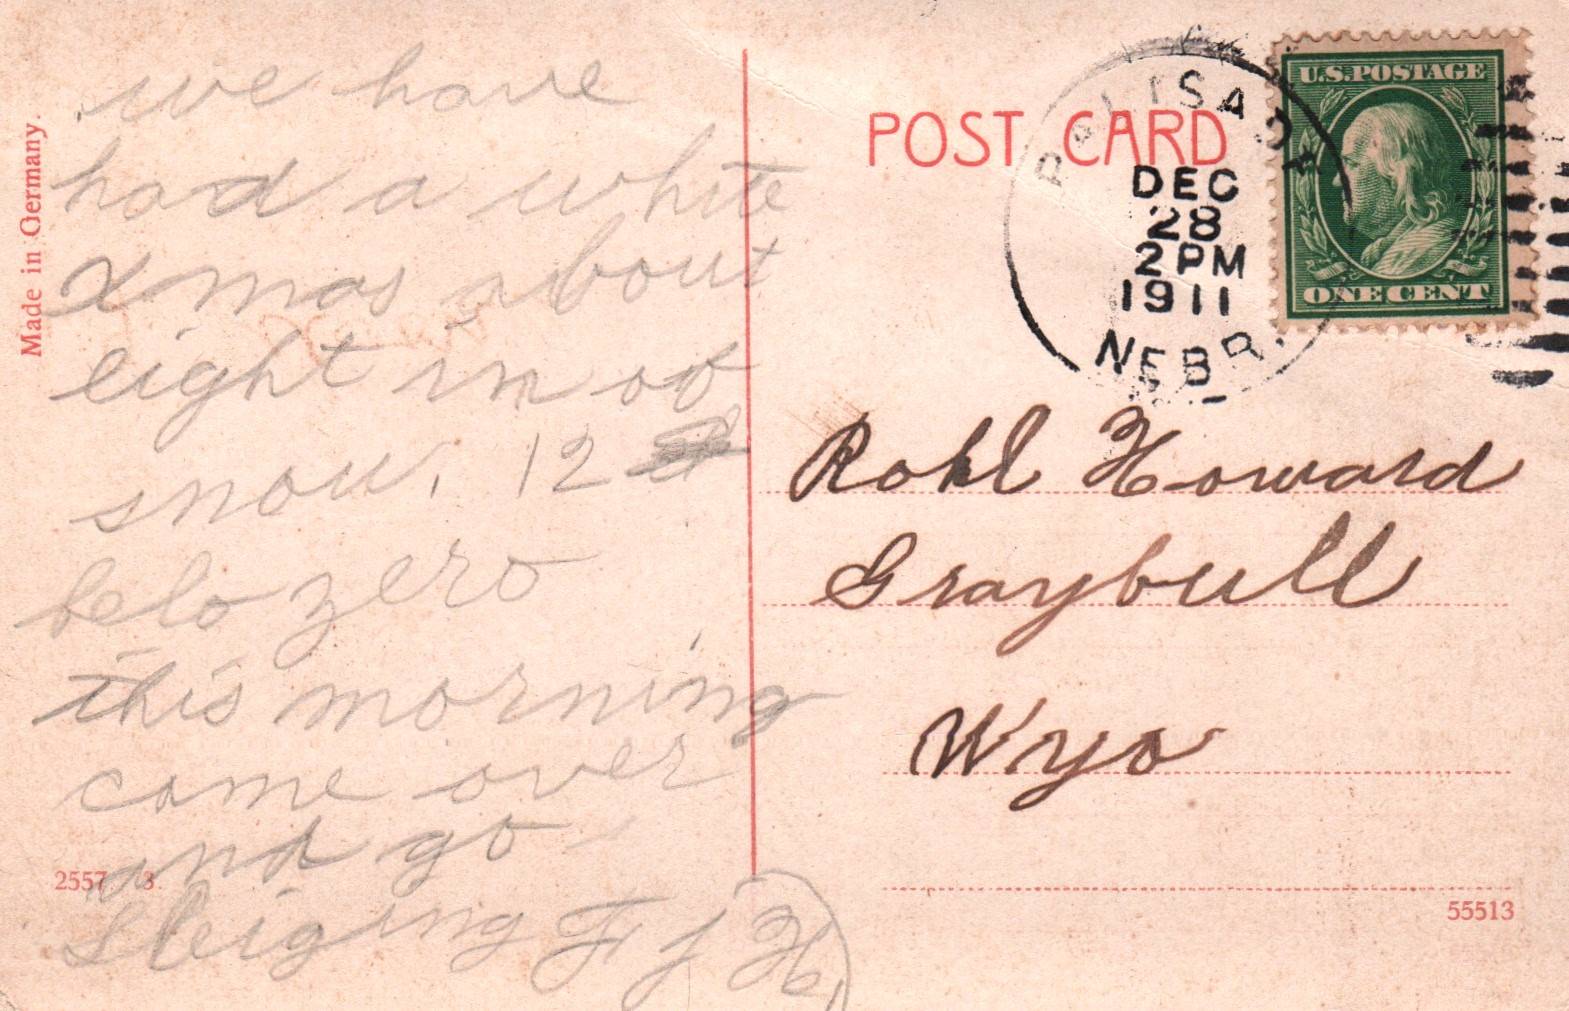 we have
had a white
Xmas about
eight in of
snow. 12
belo zero
this morning
come over
and go
Sleiging F J H.
Made in Germany.
2557 3
POST CARD
PALISADE
DEC
28
2 PM
1911
NEBR.
U.S. POSTAGE
ONE CENT
Rohl Howard
Graybull
Wyo
55513